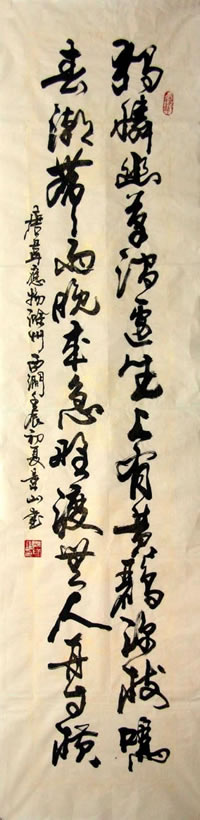 獨憐幽草澗邊生上有黄鸝深樹鳴
春潮帶雨晚來急野渡無人舟自横
唐韋應物滁州西澗壬辰初夏山書